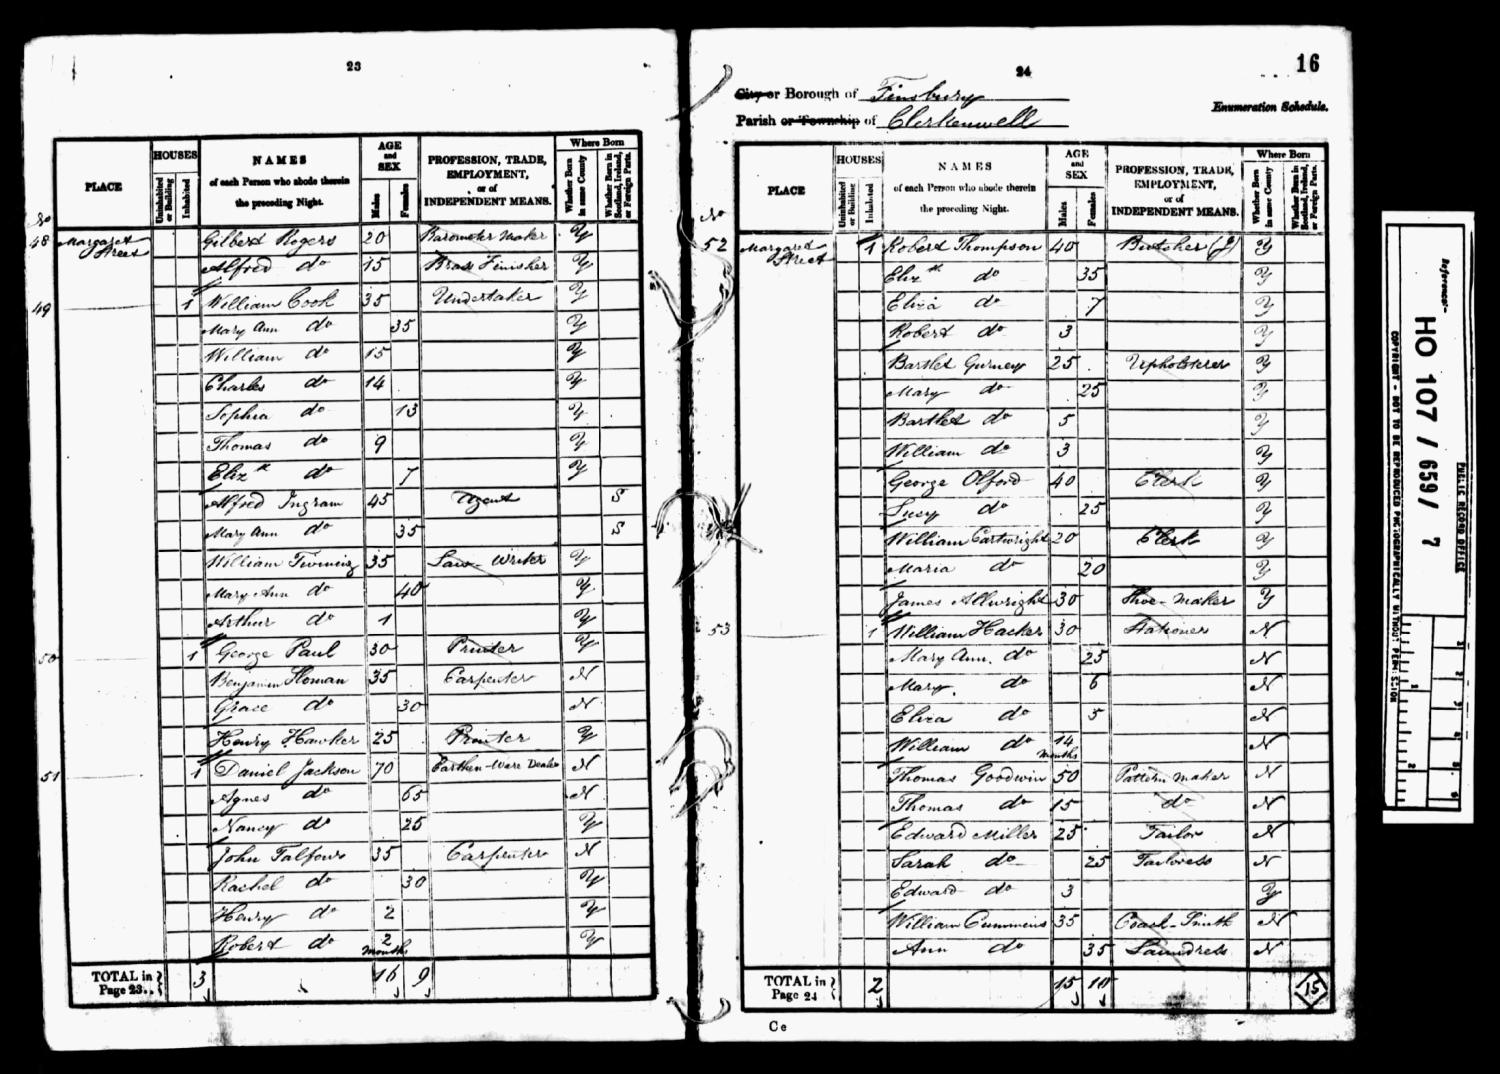 23
PLACE
HOUSES
Uninhabited or Building
Inhabited
NAMES
of each Person who abode therein
the preceding Night.
AGE
and
SEX
Males
Females
PROFESSION, TRADE,
EMPLOYMENT,
or of
INDEPENDENT MEANS.
Where Born
Whether Born in same County
Whether Born in Scotland, Ireland, or Foreign Parts.
No
48 Margaret Street Gilbert Rogers 20 Barometer Maker Y
Alfred do 15 Brass Finisher Y
49 1 William Cook 35 Undertaker Y
Mary Ann do 35 Y
William do 15 Y
Charles do 14 Y
Sophia do 13 Y
Thomas do 9 Y
Elizth do 7 Y
Alfred Ingram 45 Agent S
Mary Ann do 35 S
William Twining 35 Law-Writer Y
Mary Ann do 40 Y
Arthur do 1 Y
50 1 George Paul 30 Printer Y
Benjamin Homan 35 Carpenter N
Grace do 30 N
Henry Hawker 25 Printer Y
51 1 Daniel Jackson 70 Earthen-Ware Dealer N
Agnes do 65 N
Nancy do 25 Y
John Talfour 35 Carpenter N
Rachel do 30 Y
Henry do 2 Y
Robert do 2 months Y
TOTAL in Page 23.. 3 16 9
24
16
City or Borough of Finsbury
Enumeration Schedule.
Parish or Township of Clerkenwell
PLACE
HOUSES
Uninhabited or Building
Inhabited
NAMES
of each Person who abode therein
the preceding Night.
AGE
and
SEX
Males
Females
PROFESSION, TRADE,
EMPLOYMENT,
or of
INDEPENDENT MEANS.
Where Born
Whether Born in same County
Whether Born in Scotland, Ireland, or Foreign Parts.
No
52 Margaret Street 1 Robert Thompson 40 Butcher (J) Y
Elizth do 35 Y
Eliza do 7 Y
Robert do 3 Y
Bartlet Gurney 25 Upholsterer Y
Mary do 25 Y
Bartlet do 5 Y
William do 3 Y
George Olford 40 Clerk Y
Lucy do 25 Y
William Cartwright 20 Clerk Y
Maria do 20 Y
James Allwright 30 Shoe-Maker Y
53 1 William Hacker 30 Stationer N
Mary Ann. do 25 N
Mary. do 6 N
Eliza do 5 N
William do 14 months N
Thomas Goodwin 50 Pattern Maker N
Thomas do 15 do N
Edward Miller 25 Tailor N
Sarah do 25 Tailoress N
Edward do 3 Y
William Cummins 35 Coach-Smith N
Ann do 35 Laundress N
TOTAL in Page 24 2 15 10
15
Ce
Reference:-
HO 107 / 659 / 7
PUBLIC RECORD OFFICE
COPYRIGHT - NOT TO BE REPRODUCED PHOTOGRAPHICALLY WITHOUT PERMISSION